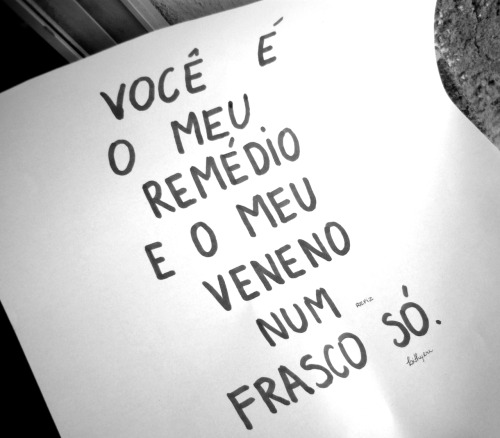 VOCÊ É
O MEU
REMÉDIO
E O MEU
VENENO
NUM
FRASCO SÓ.